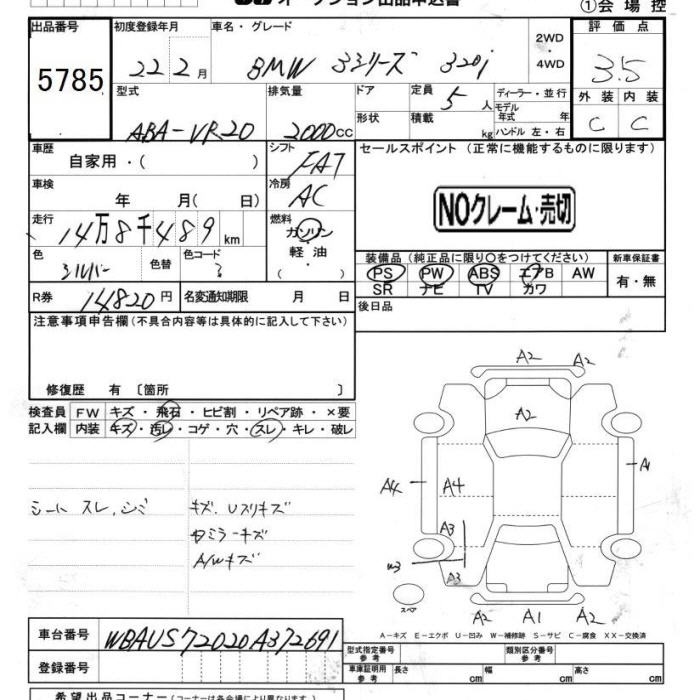 オークション出品申込書
①会場控
出品番号 5785
初度登録年月 22 2月
車名・グレード BMW 3シリーズ 320i
2WD・4WD
評価点 3.5
外装 C 内装 C
型式 ABA-VR20
排気量 2000cc
ドア
形状
定員 5人
積載 kg
ディーラー・並行
モデル年式 年
ハンドル 左・右
車歴 自家用・( )
シフト FAT
セールスポイント (正常に機能するものに限ります)
NOクレーム・売切
車検 年 月( 日)
冷房 AC
走行 14万8千489km
燃料 ガソリン・軽油 ( ・ )
色 シルバー 色替 カラーコード
装備品 (純正品に限り○をつけてください)
PS PW ABS エアB AW
SR ナビ TV カワ
新車保証書 有・無
R券 14820円
名変通知期限 月 日
後日品
注意事項申告欄 (不具合内容等は具体的に記入して下さい)
修復歴 有 〔箇所 〕
検査員記入欄
FW キズ・飛石・ヒビ割・リペア跡・×要
内装 キズ・汚レ・コゲ・穴・スレ・キレ・破レ
シート スレ,シミ
キズ.Uスリキズ
A/Wキズ
A2 A2
A2
A4 A4 A1
A3
W3
A3
スペア
A2 A1 A2
A-キズ E-エクボ U-凹み W-補修跡 S-サビ C-腐食 XX-交換済
車台番号 WBAUS72020A372691
登録番号
型式指定番号 参考
類別区分番号 参考
車庫証明用 参考 長さ cm 幅 cm 高さ cm
希望出品コーナー (コーナーは各会場により異なります)